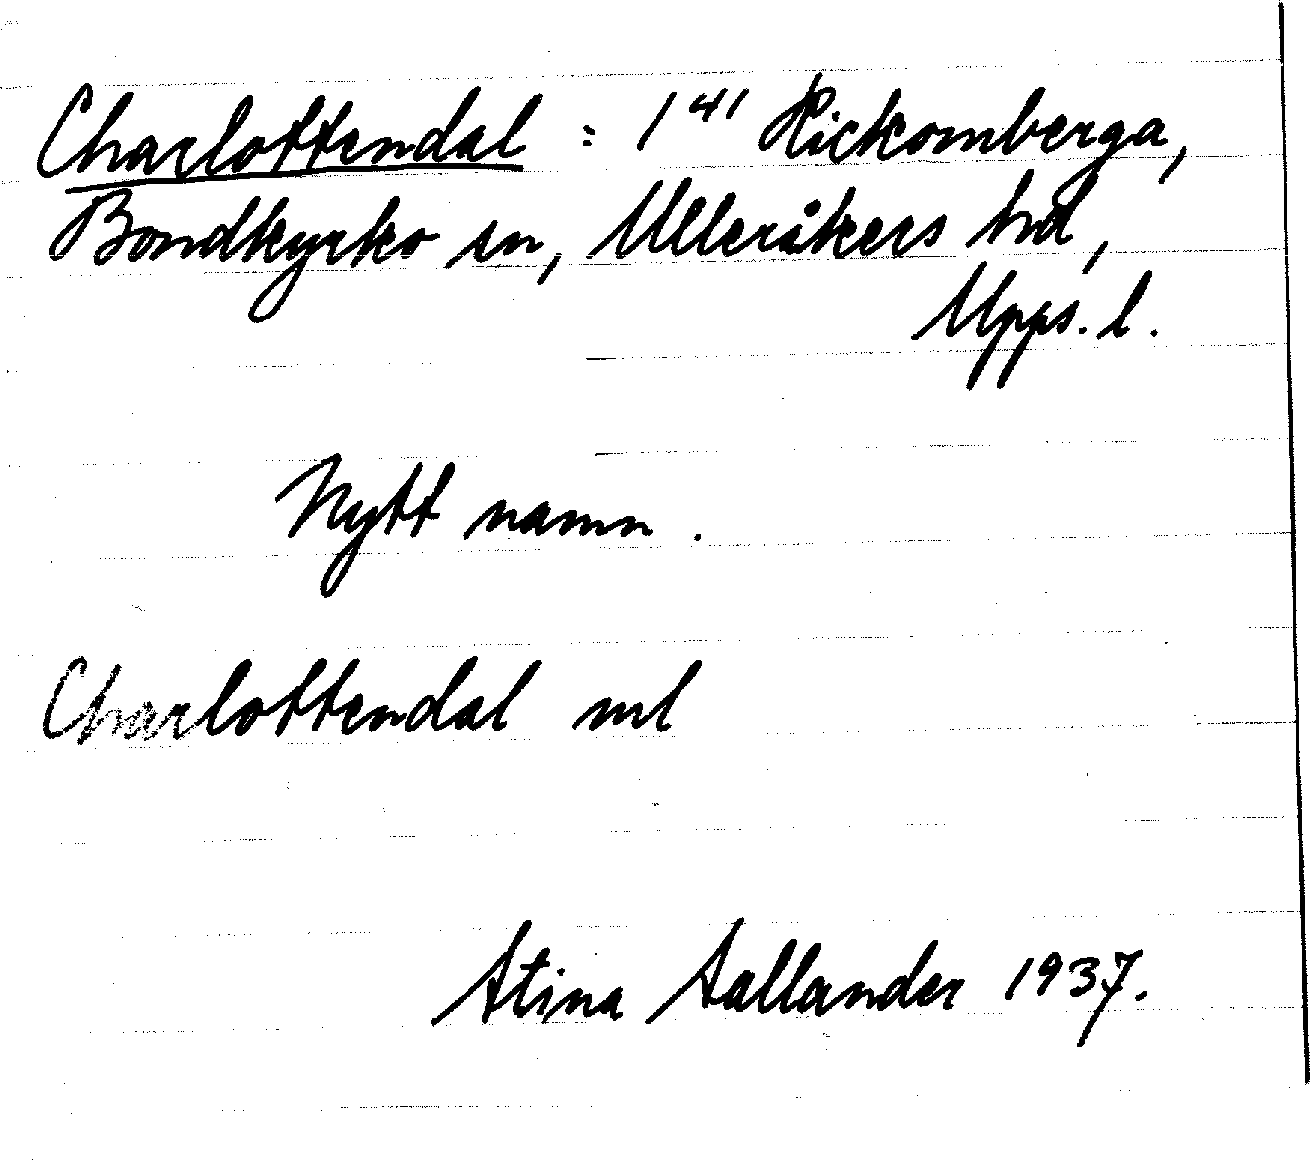 Charlottendal : 1⁴¹ Hickomberga,
Bondkyrko sn, Ulleråkers hd,
Upps. l.
Nytt namn.
Charlottendal ml
Stina Sallander 1937.